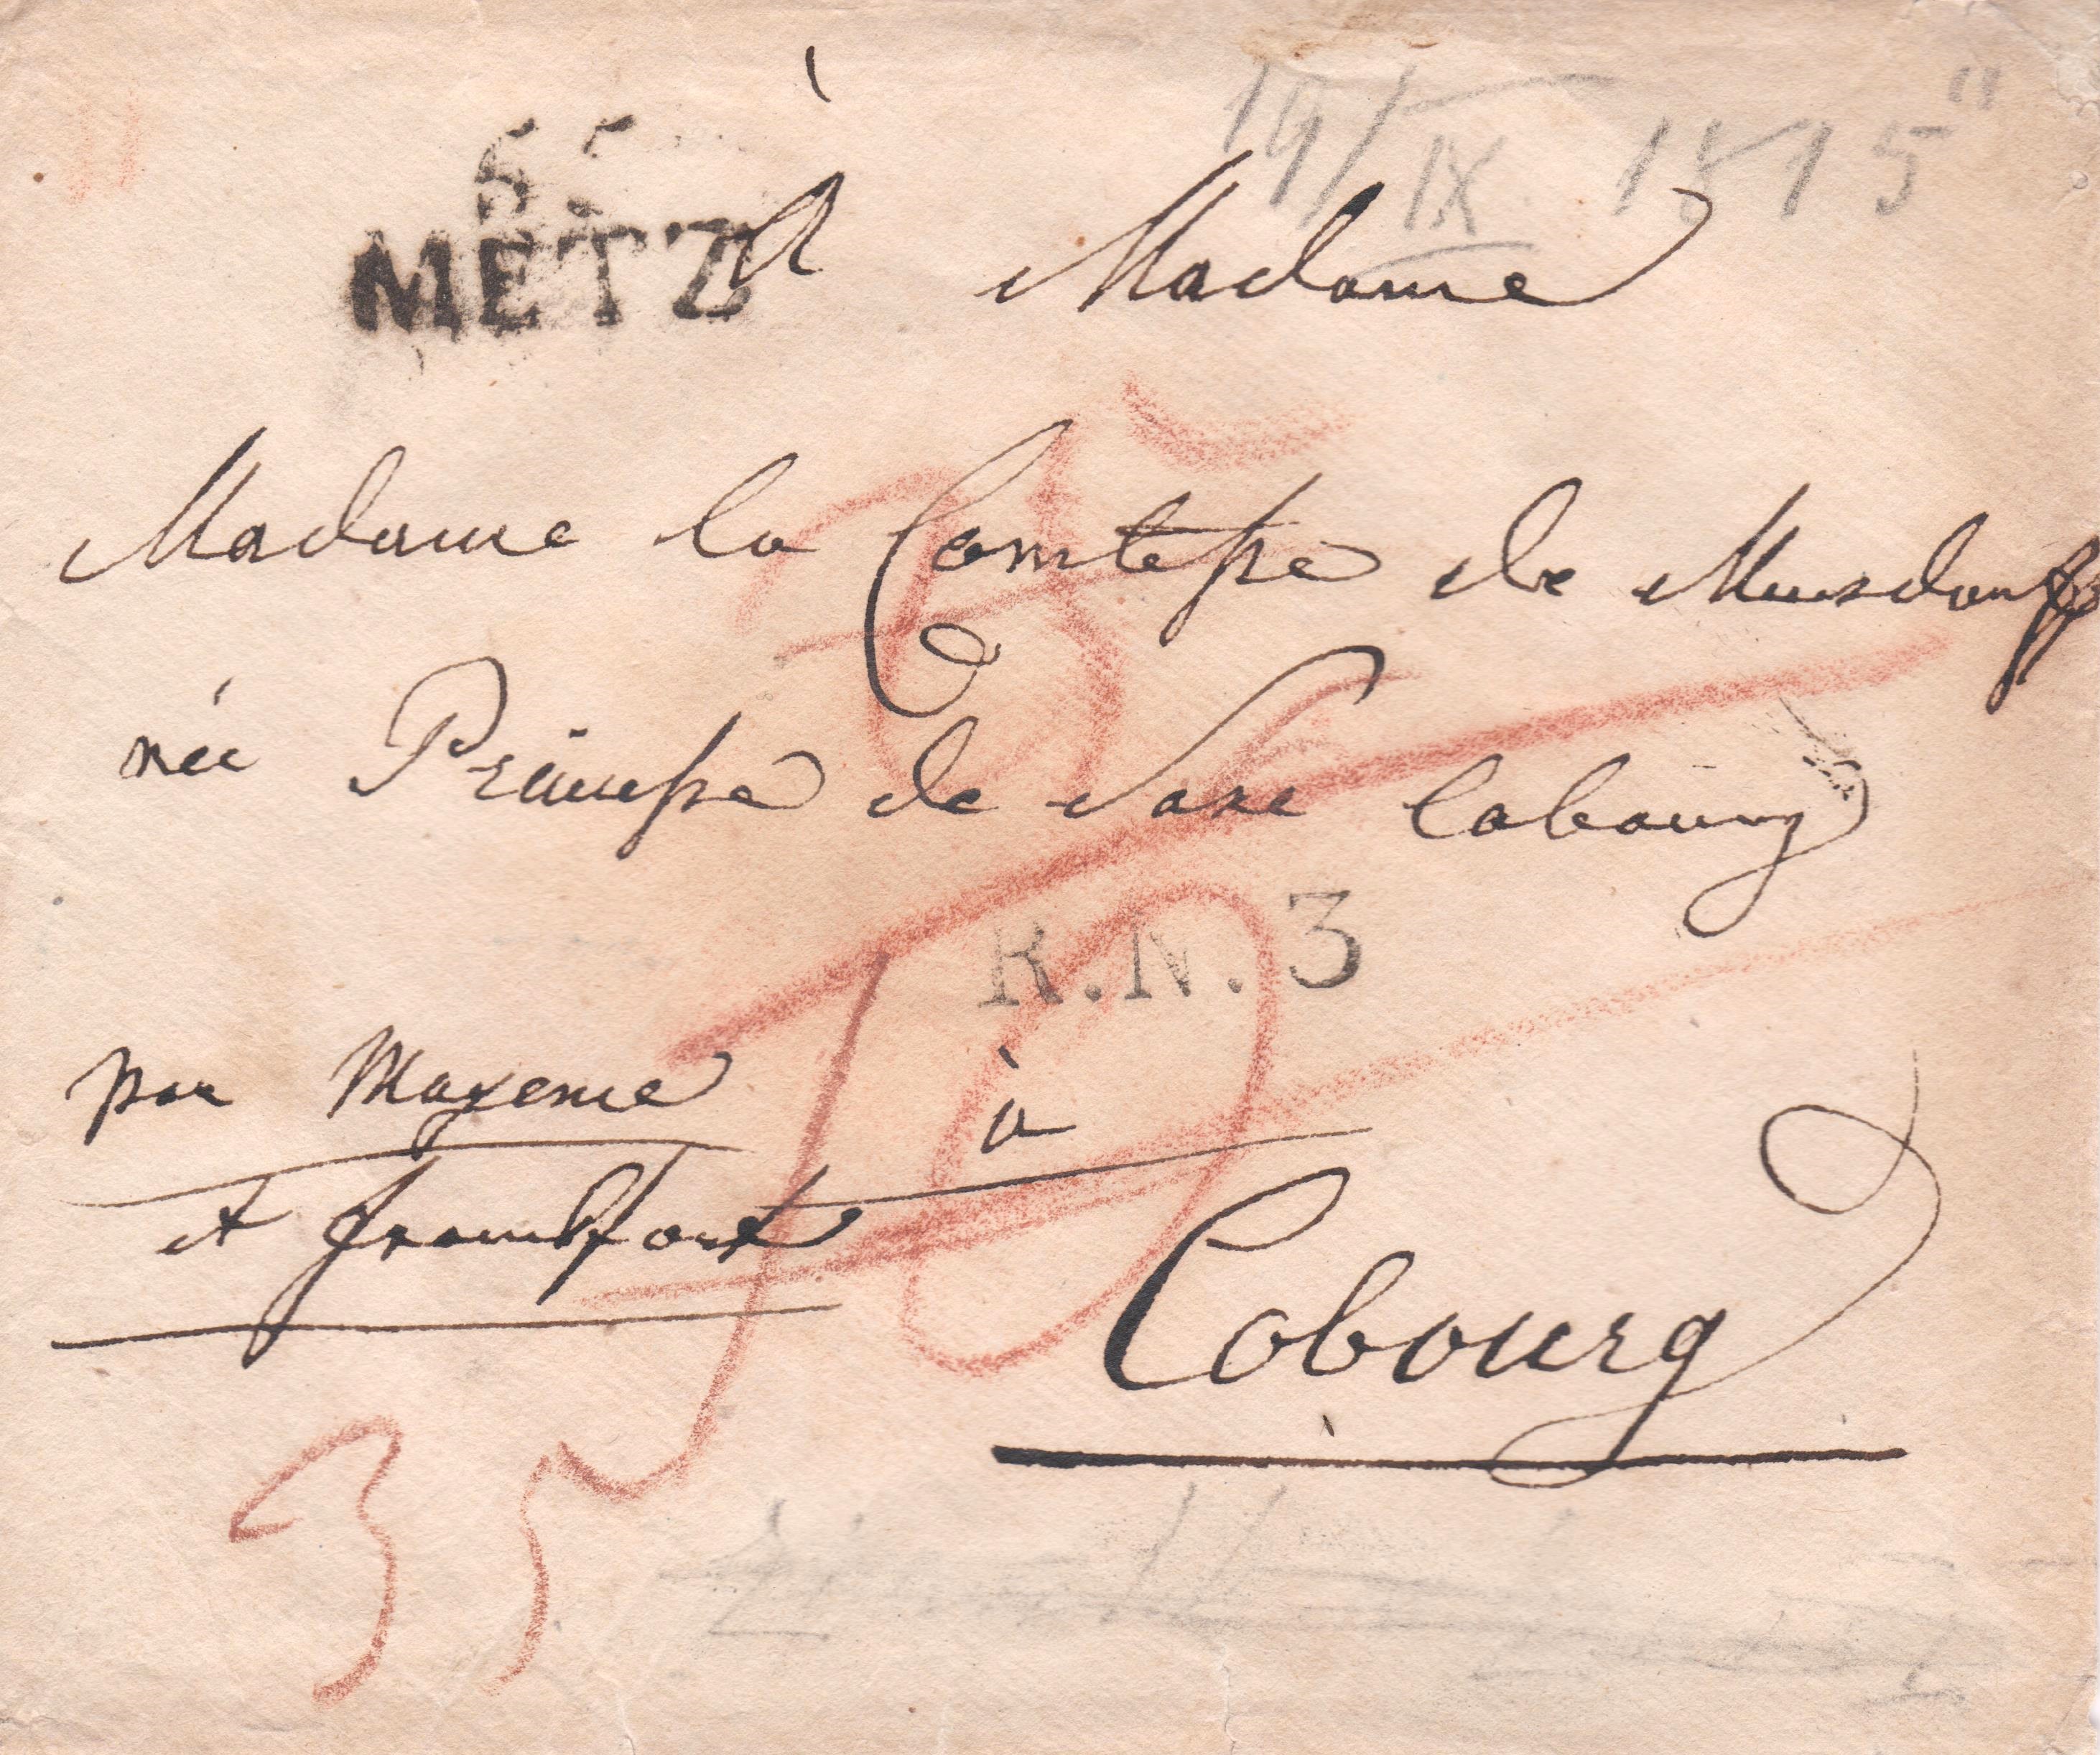 55
METZ
19/IX 1815
À Madame
Madame la Comtesse de Mensdorff
née Princesse de Saxe Cobourg
R.N.3
par Mayence
à
et Francfort
Cobourg
35